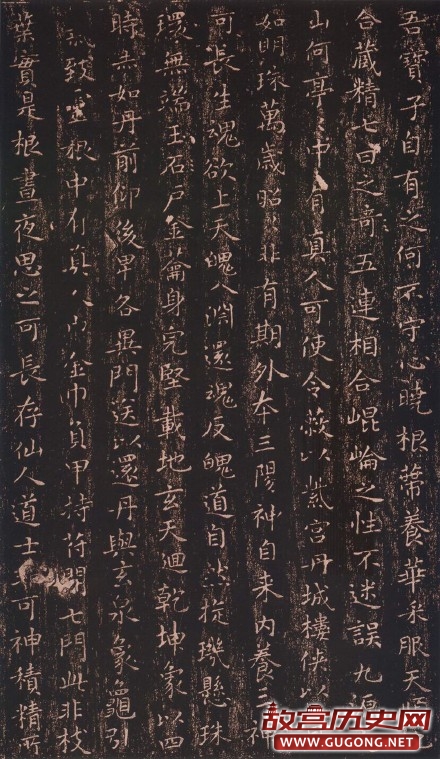 吾寶子自有之何不守心曉根蔕養華采服天
合藏精七日之奇五連相合崐崘之性不迷誤九源
山何亭〻中有真人可使令蔽以紫宮丹城樓俠以
如明珠萬歲昭〻非有期外本三陽神自来内養三神
可長生魂欲上天魄入淵還魂反魄道自然旋璣懸珠
環無端玉石戶金蘥身完堅載地玄天迴乾坤象以四
時赤如丹前仰後卑各異門送以還丹與玄泉象龜引
氣致靈根中有真人巾金巾負甲持符開七門此非枝
葉實是根晝夜思之可長存仙人道士非可神積精所
故宫历史网
WWW.GUGONG.NET